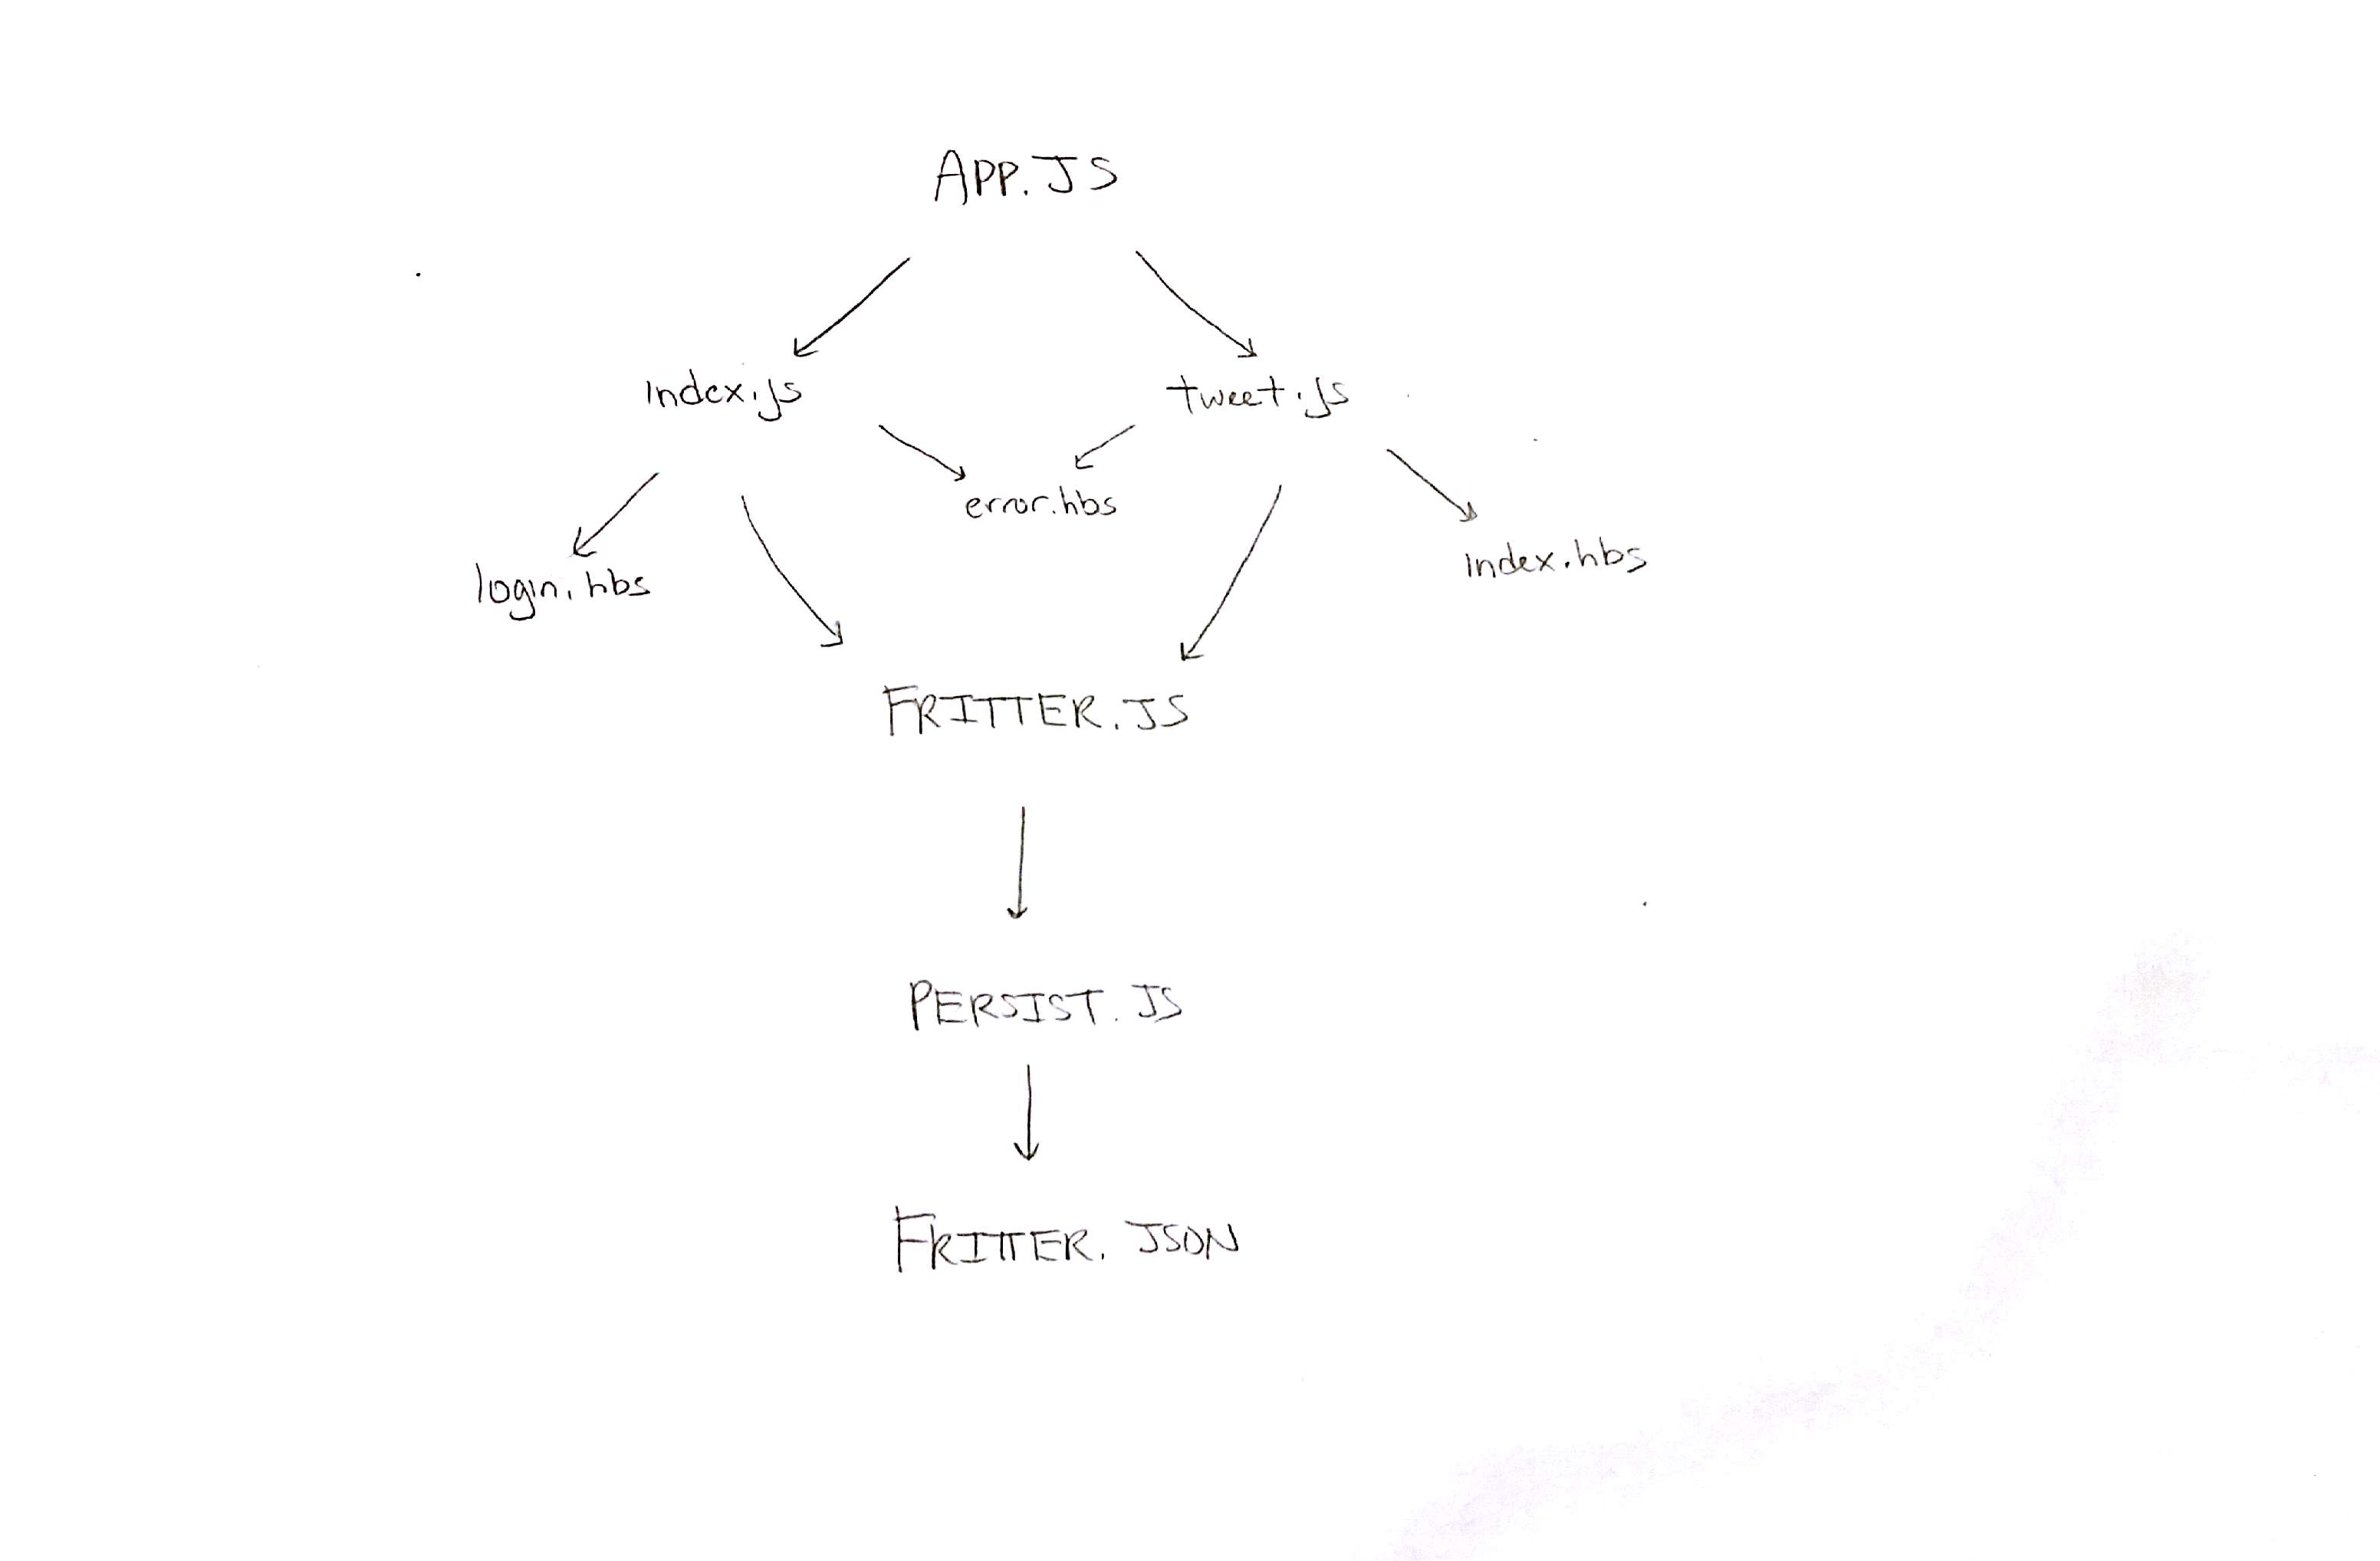 APP.JS
Index.js
tweet.js
error.hbs
login.hbs
index.hbs
FRITTER.JS
PERSIST.JS
FRITTER.JSON